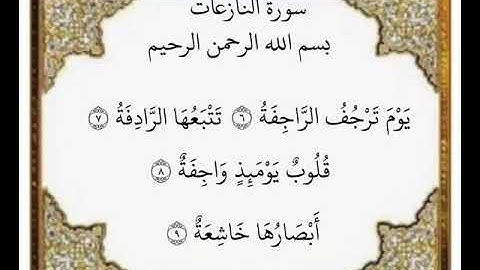 سورة النازعات
بسم الله الرحمن الرحيم
يَوْمَ تَرْجُفُ الرَّاجِفَةُ ٦ تَتْبَعُهَا الرَّادِفَةُ ٧
قُلُوبٌ يَوْمَئِذٍ وَاجِفَةٌ ٨
أَبْصَارُهَا خَاشِعَةٌ ٩